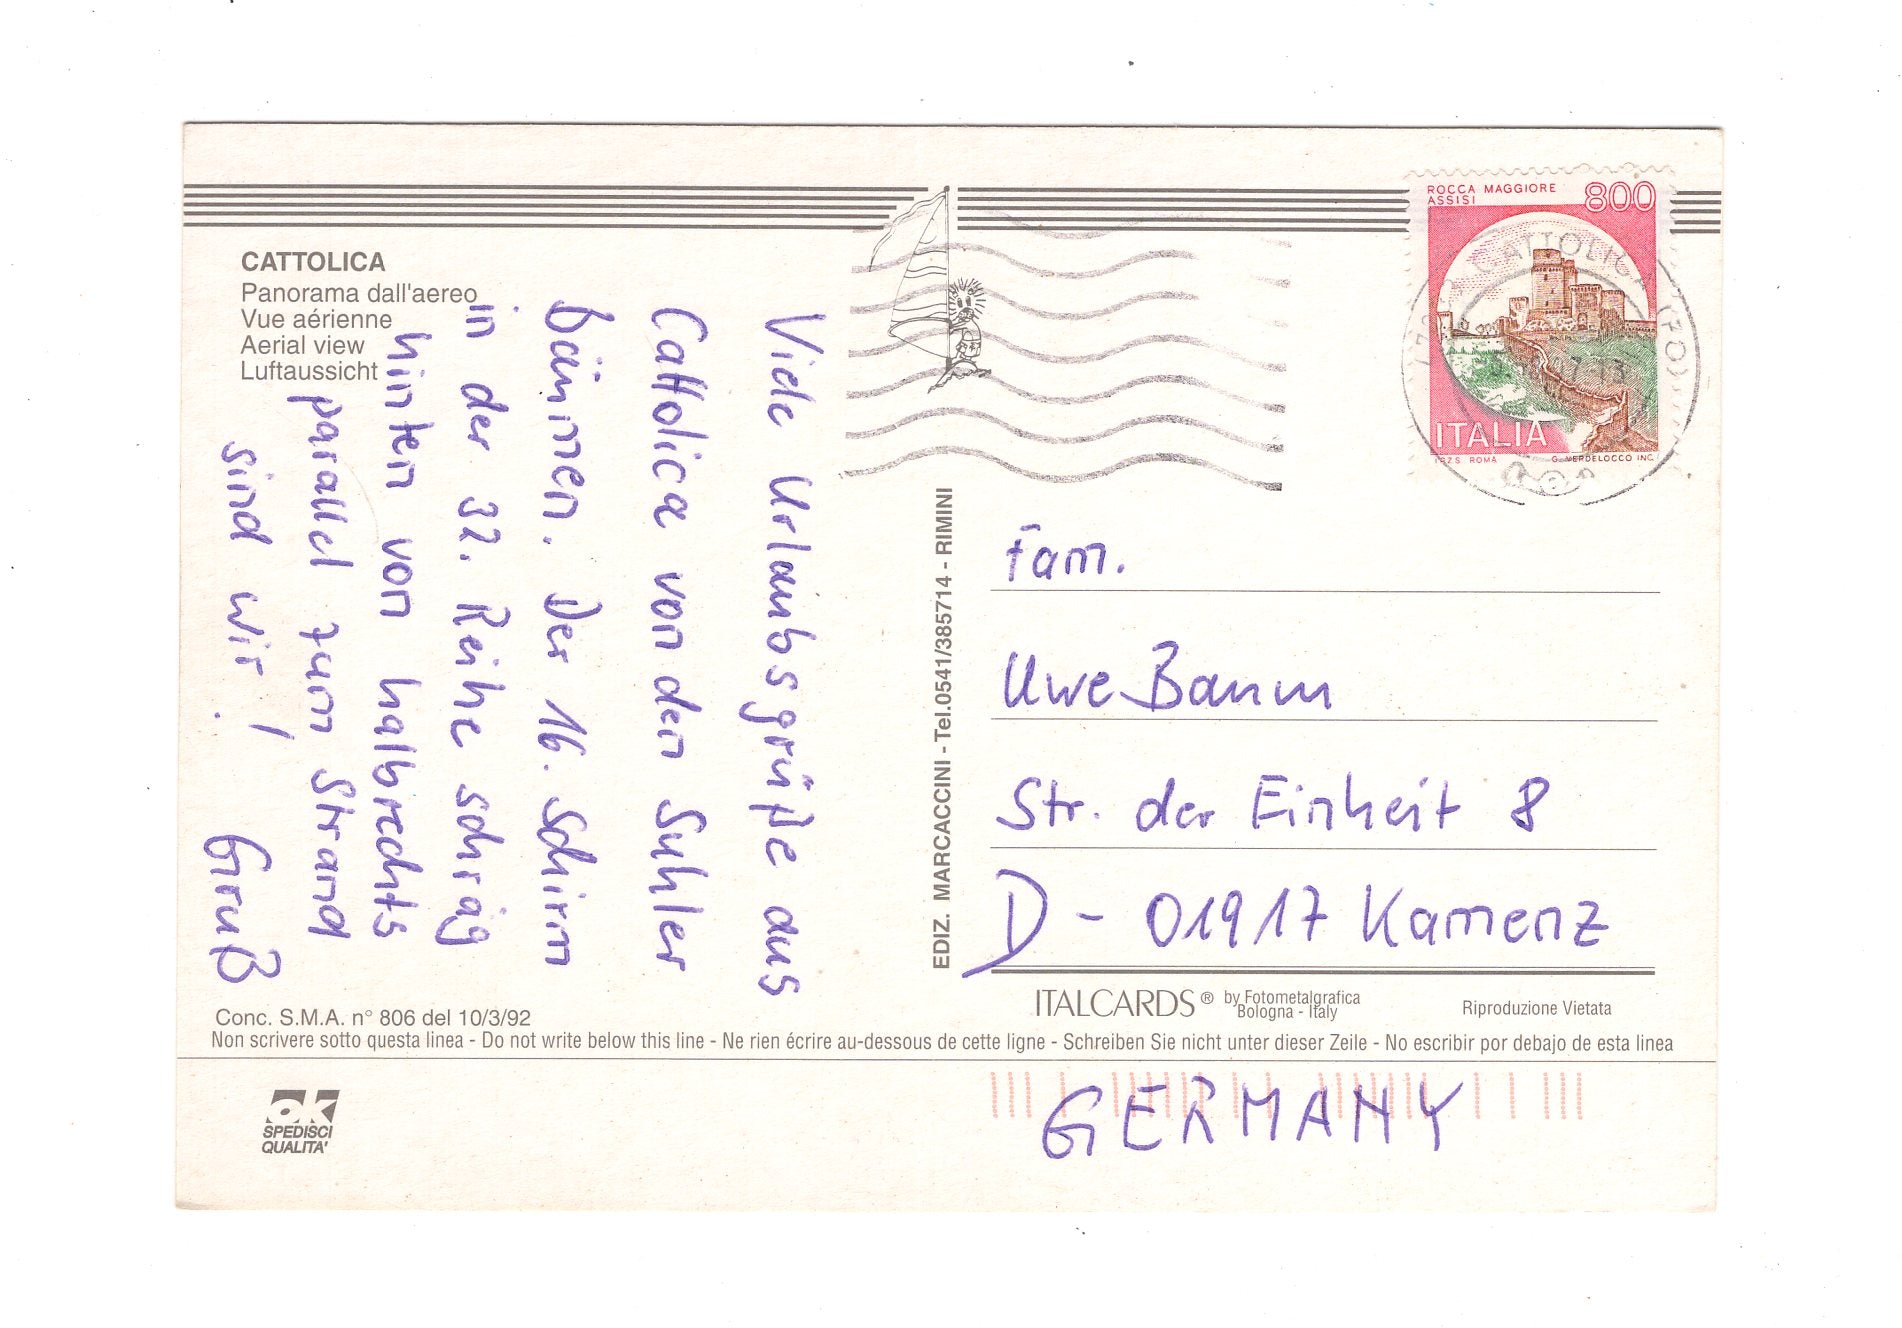 ROCCA MAGGIORE
ASSISI
800
CATTOLICA
ITALIA
I.P.Z.S. ROMA G. VERDELOCCO INC.
CATTOLICA
Panorama dall'aereo
Vue aérienne
Aerial view
Luftaussicht
Viele Urlaubsgrüße aus
Cattolica von den Suhler
Bäumen. Der 16. Schirm
in der 32. Reihe schräg
hinten von halbrechts
parallel zum Strand
sind wir! Gruß
EDIZ. MARCACCINI - Tel.0541/385714 - RIMINI
Fam.
Uwe Baum
Str. der Einheit 8
D - 01917 Kamenz
ITALCARDS ® by Fotometalgrafica
Bologna - Italy
Riproduzione Vietata
Conc. S.M.A. n° 806 del 10/3/92
Non scrivere sotto questa linea - Do not write below this line - Ne rien écrire au-dessous de cette ligne - Schreiben Sie nicht unter dieser Zeile - No escribir por debajo de esta linea
GERMANY
ok
SPEDISCI
QUALITA'